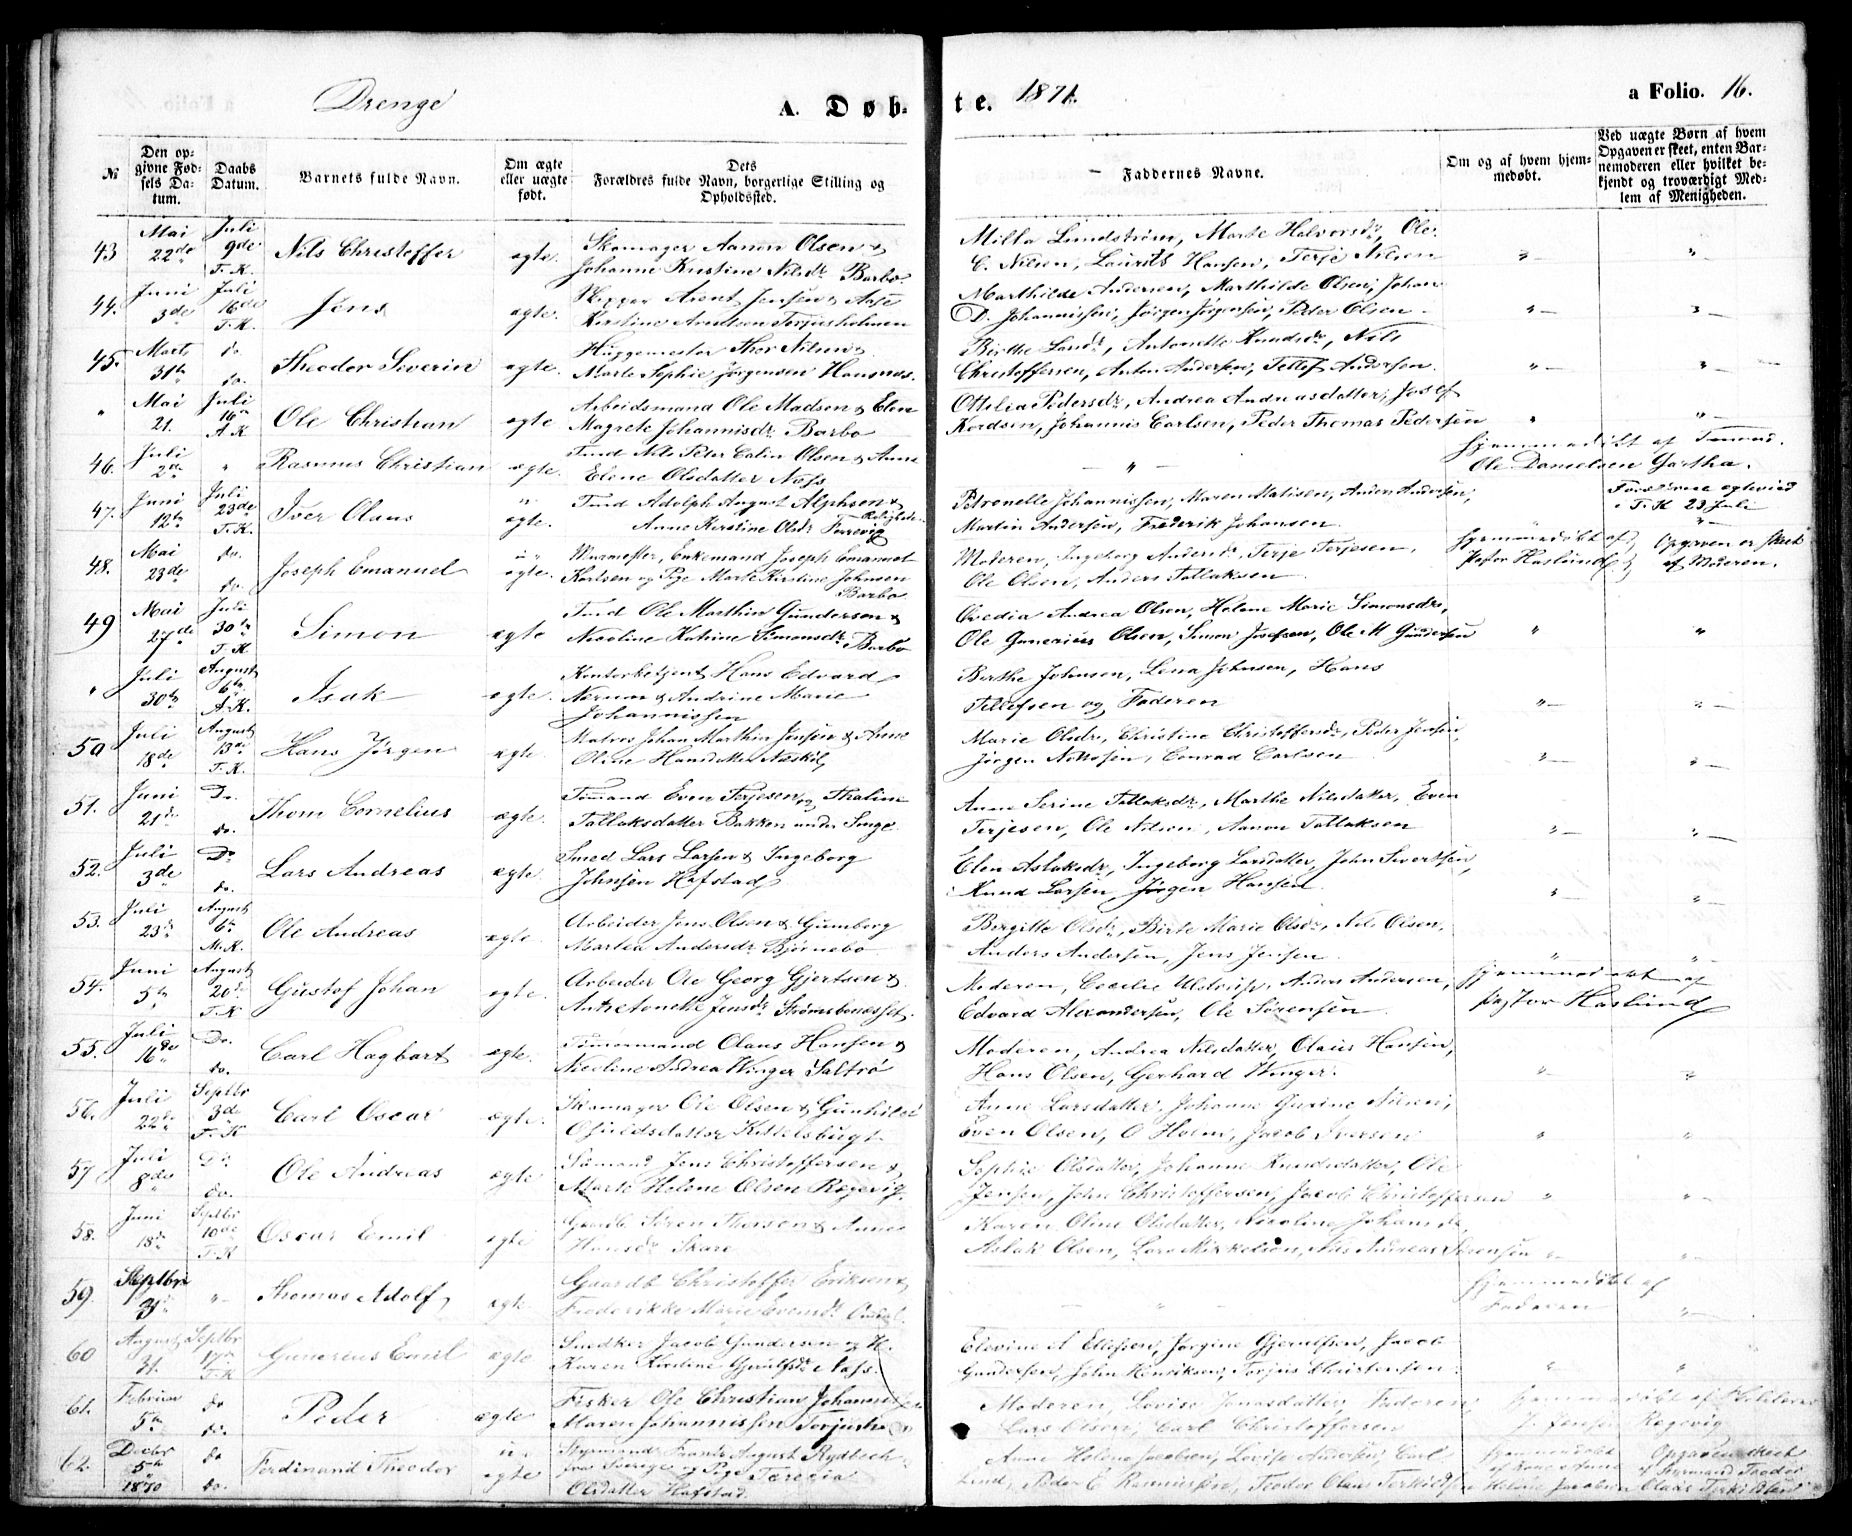 Drenge
A. Døb-
te. 1871.
a Folio. 16.
№
Den opgivne Fødsels Datum.
Daabs Datum.
Barnets fulde Navn.
Om ægte eller uægte født.
Dets Forældres fulde Navn, borgerlige Stilling og Opholdssted.
Faddernes Navne.
Om og af hvem hjemmedøbt.
Ved uægte Børn af hvem Opgaven er skeet, enten Barnemoderen eller hvilket bekjendt og troværdigt Medlem af Menigheden.
43 Mai 22de Juli 9de T.K. Nils Christoffer ægte. Skomager Aanon Olsen &
Johanne Kirstine Nilsdr Barbo.
Milla Lundstrøm, Marte Halvorsdr, Ole
C. Nilsen, Laurits Hansen, Terje Nilsen
44. Juni 3de Juli 16de T.K. Jens ægte. Arent Jensen & Aase
Kirstine Arntsen Torjusholmen
Marthilde Andersen, Marthilde Olsen, Johan
D. Johannissen, Jørgen Jørgensen, Peder Olsen
45. Marts 31te do. do. Theodor Severin ægte. Huggemester Thor Nilsen &
Marte Sophie Jørgensen Hansnæs.
Birthe Larsdr, Antonette Knudsdr, Nils
Christoffersen, Anton Andersen, Tellef Andersen.
" Mai 21. Juli 16de A.K. Ole Christian ægte Arbeidsmand Ole Madsen & Elen
Magrete Johannisdr Barbo
Ottilia Pedersdr, Andrea Andreasdatter, Josef
Knudsen, Johannis Carlsen, Peder Thomas Pedersen
46. Juli 2de " Rasmus Christian ægte. Tmd Nils Peter Calin Olsen & Anne
Elene Olsdatter Næss
Hjemmedøbt af Tmmd.
Ole Danielsen Gartha.
47. Juni 12te Juli 23de T.K. Iver Olaus u ægte. Tmd Adolph August Alphsen &
Anne Kirstine Olsdr Færevig
Petronelle Johannissen, Maren Matisen, Anders Andersen,
Martin Andersen, Frederik Johansen
i T.K 23 Juli
48. Mai 23de do. do. Joseph Emanuel u ægte. Enkemand Joseph Emanuel
Karlsen og Pige Marte Kirstine Johnsen
Barbo
Moderen, Ingeborg Andersdr, Terje Terjesen,
Ole Olsen, Anders Tallaksen
Hjemmedøbt af
Pastor Haslund
Opgaven er skeet
af Moderen.
49 Mai 27de Juli 30te T.K. Simon ægte Tmd Ole Marthin Gundersen &
Nicoline Katrine Simonsdr Barbo
Ovedia Andrea Olsen, Helene Marie Simonsdr,
Ole Gunerius Olsen, Simon Josefsen, Ole M Gundersen
" Juli 30te August 6te A.K. Isak ægte. Kontorbetjent Hans Edvard
Nerum & Andrine Marie
Johannissen
Birthe Johnsen, Lena Johnsen, Hans
Tellefsen og Faderen
50 Juli 18de August 13de T.K. Hans Jørgen ægte. Matros Johan Marthin Jensen & Anne
Oline Hansdatter Næskil
Marie Olsdr, Christine Christoffersdr, Peder Jensen,
Jørgen Nottosen, Conrad Carlsen
51. Juni 21de Do. do. Thom Cornelius ægte. Tømmand Even Terjesen og Thaline
Tallaksdatter Bakken under Songe.
Anne Serine Tallaksdr, Marthe Nilsdatter, Even
Terjesen, Ole Nilsen, Aanon Tallaksen
52. Juli 3de Do do. Lars Andreas ægte. Smed Lars Larsen & Ingeborg
Johnsen Hafstad
Elen Aslaksdr, Ingeborg Larsdatter, John Sivertsen,
Knud Larsen, Jørgen Hansen
53. Juli 23de August 6te M.K. Ole Andreas ægte. Arbeider Jens Olsen & Gumberg
Martea Andersdr Bjørnebo
Birgitte Olsdr, Birte Marie Olsdr, Nils Olsen,
Anders Andersen, Jens Jensen
54. Juni 5te August 20de T.K. Gustof Johan ægte. Arbeider Ole Georg Gjertsen &
Antetonette Jensdr Strømsbonesset.
Moderen, Cecilie Uldrup, Anders Andersen,
Edvard Alexandersen, Ole Sørensen
Hjemmedøbt af
Pastor Haslund
55. Juli 16de Do. do. Carl Hagbart ægte. Tømermand Olaus Hansen &
Nicoline Andrea Winger Saltrø
Moderen, Andrea Nilsdatter, Olaus Hansen,
Hans Olsen, Gerhard Winger.
56. Juli 22de Septbr 3de T.K Carl Oscar ægte. Skomager Ole Olsen & Gunhild
Osuldsdatter Kittelsbugt
Anne Larsdatter, Johanne Gurine Nilsen,
Even Olsen, O Holm, Jacob Iversen
57 Juli 8de Do. do. Ole Andreas ægte Sømand Jens Christoffersen &
Marte Helene Olsen Rægevig
Sophie Olsdatter, Johanne Knudsdatter, Ole
Jensen, John Christoffersen, Jacob Christoffersen
58. Juni 18de Septbr 10de T.K Oscar Emil ægte Gaardb Søren Thorsen & Anne
Hansdr Skare
Karen Oline Olsdatter, Nicoline Johansdr,
Aslak Olsen, Lars Mikkelsen, Nils Andreas Sørensen
59. Septbr Thomas Adolf ægte Gaardb Christoffer Eriksen &
Frederikke Marie Evensdr
Hjemmedøbt af
Faderen
60 August 31. Septbr 17de T.K Gunerius Emil ægte Snedker Jacob Gundersen og H.
Karen Kirstine Gjerulfsdr Næss.
Elevine A Ellefsen, Jørgine Gjerulfsen, Jacob
Gundersen, John Henriksen, Torjus Christensen
61. Februar 5te do do. Peder ægte Fisker Ole Christian Johannessen
Maren Johannissen Torjusholmen
Moderen, Lovise Jonasdatter, Faderen,
Lars Olsen, Carl Christoffersen
Hjemmedøbt af
J. Jensen Rægevig
62. Decbr 5te 1870 do do. Ferdinand Theodor u ægte Styrmand Frants August Rydbeck
fra Sverige og Pige Terecia
Olsdatter Hafstad.
Anne Helene Jacobsen, Lovise Andersen, Carl
Lind, Peder E Rasmussen, Teodor Olaus Terkildsen
Hjemmedøbt
af Kone Anne
Helene Jacobsen
Opgaven skeet
af Styrmand Teodor
Olaus Terkildsen